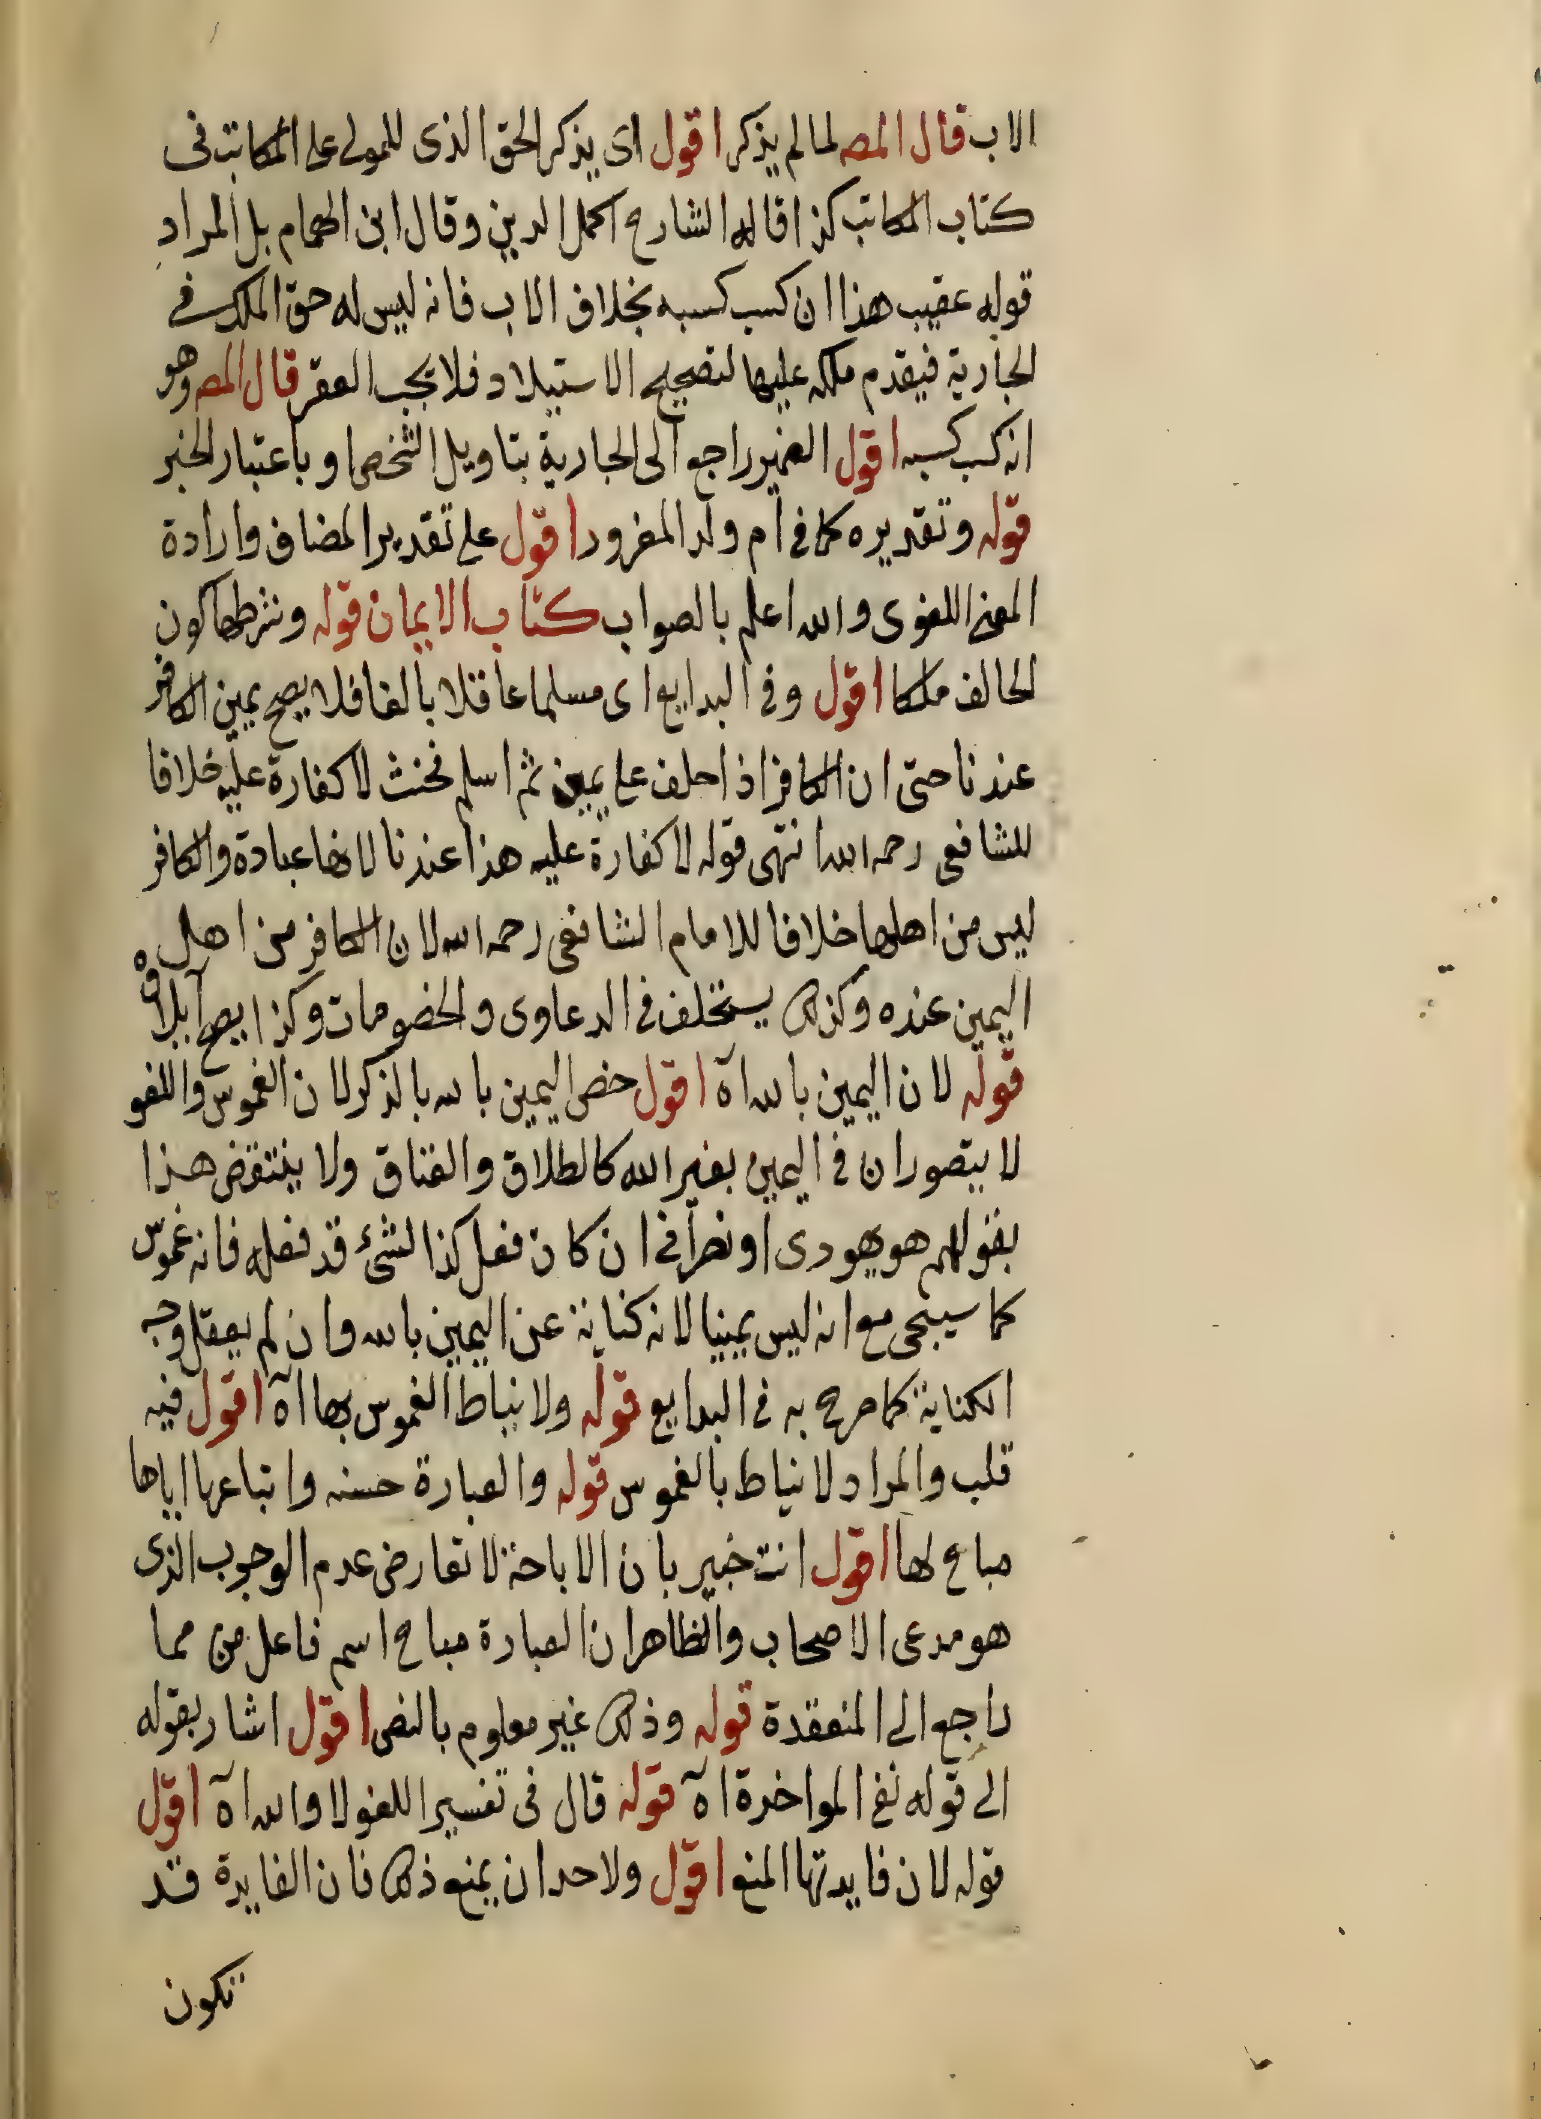 الاب قال المصـ لما لم يذكر اقول اى يذكر الحق الذى للمولى على المكاتب فى
كتاب المكاتب كذا قاله الشارح اكمل الدين وقال ابن الهمام بل المراد
قوله عقيب هذا ان كسب كسبه بخلاف الاب فانه ليس له حق الملك فے
الجارية فيقدم ملكه عليها لتصحيح الاستيلاد فلا يجب العقر قال المصـ وهو
انه كسب كسبه اقول الضمير راجع الى الجارية بتاويل الشخص او باعتبار الخبر
قوله وتقديره كما فى ام ولد المغرور اقول على تقدير المضاف وارادة
المعنى اللغوى والله اعلم بالصواب كتاب الايمان قوله وشرطها كون
الحالف مكلفا اقول وفى البدايع اى مسلما عاقلا بالغا فلا يصح يمين الكافر
عندنا حتى ان الكافر اذا حلف على يمين ثم اسلم فحنث لا كفارة عليه خلافا
للشافعى رحمه الله انتهى قوله لا كفارة عليه هذا عندنا لانها عبادة والكافر
ليس من اهلها خلافا للامام الشافعى رحمه الله لان الكافر من اهل
اليمين عنده وكذلك يستحلف فى الدعاوى والخصومات وكذا يصح ايلاؤه
قوله لان اليمين بالله اه اقول خص اليمين بالله بالذكر لان الغموس واللغو
لا يتصوران فى اليمين بغير الله كالطلاق والعتاق ولا ينتقض هذا
بقولهم هو يهودى او نصرانى ان كان فعل كذا لشئ قد فعله فانه غموس
كما سيجى مع انه ليس يمينا لانه كناية عن اليمين بالله وان لم يعقل وجه
الكناية كما صرح به فى البدايع قوله ولا نياط الغموس بها اه اقول فيه
قلب والمراد لا نياط بالغموس قوله والعبارة حسنه واتباعها اياها
مباح لها اقول انت خبير بان الاباحة لا تعارض عدم الوجوب الذى
هو مدعى الاصحاب والظاهر ان العبارة مباح اسم فاعل من مما
راجع الى المنعقدة قوله وذلك غير معلوم بالنص اقول اشار بقوله
الى قوله نفى المواخذة اه قوله قال فى تفسير اللغو لا والله اه اقول
قوله لان فايدتها المنع اقول ولاحد ان يمنع ذلك فان الفايدة قد
تكون